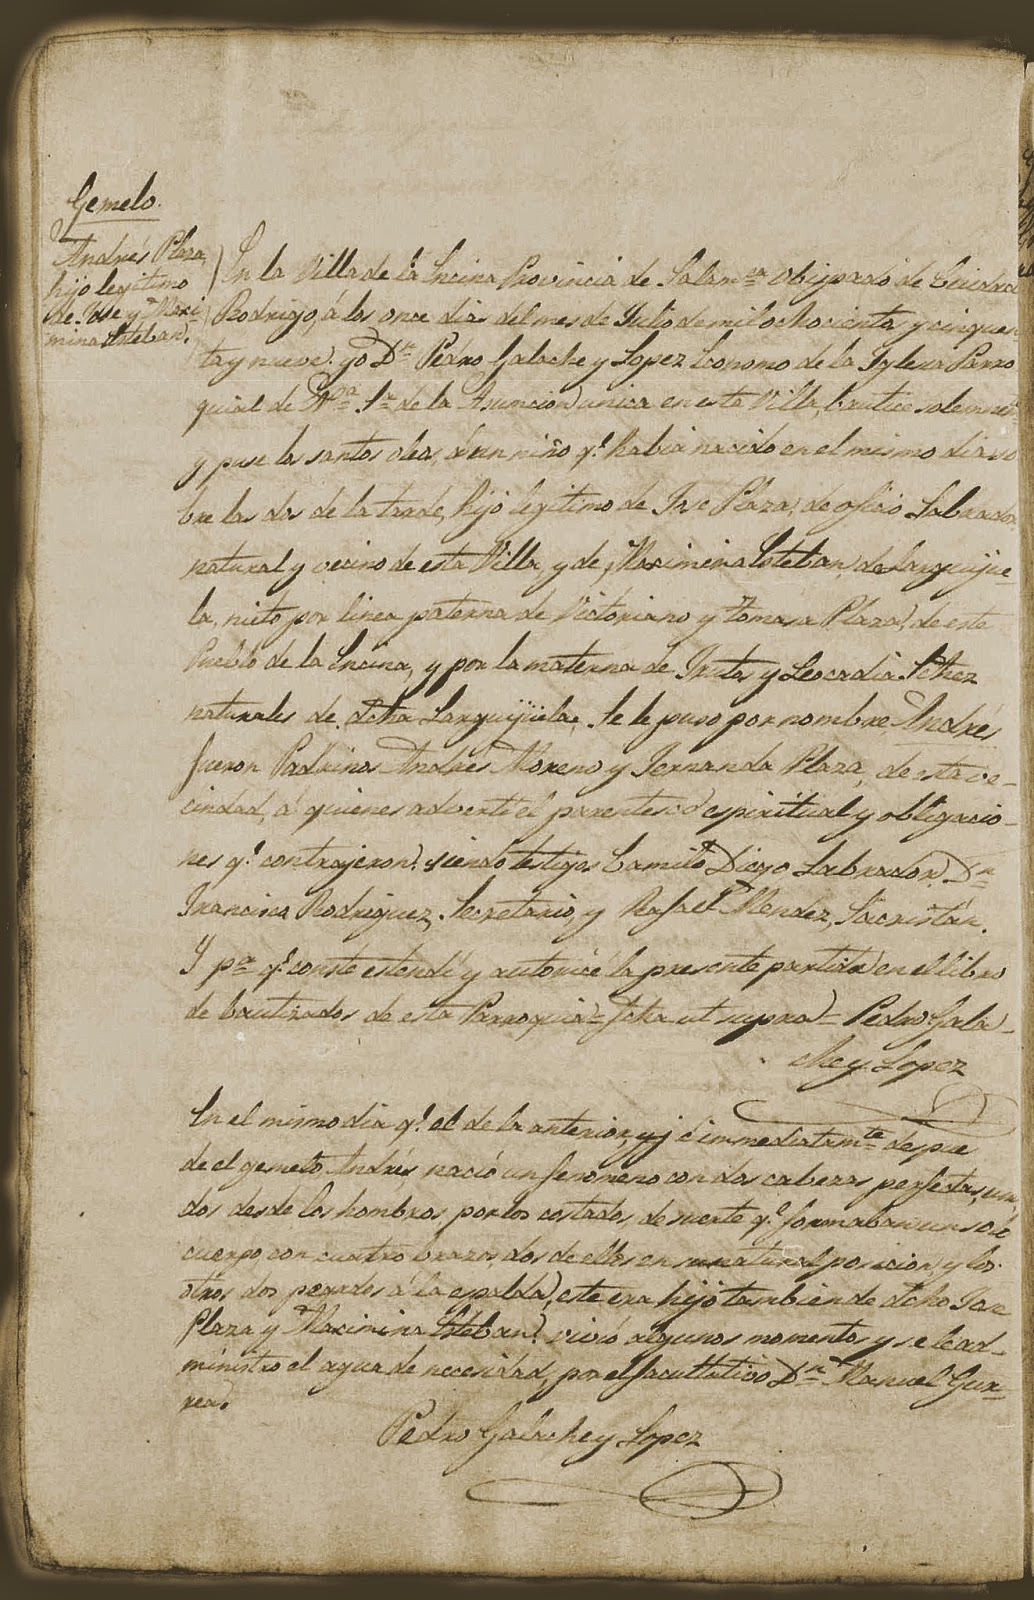 Gemelo.
Andrés Plaza,
hijo legitimo
de Jose y Maxi
mina Esteban.
En la Villa de la Encina Provincia de Salam.ca Obispado de Ciudad
Rodrigo, á los once dias del mes de Julio de mil ochocientos y cinquen
ta y nueve. yo D.n Pedro Galache y Lopez Economo de la Iglesia Parro
quial de N.ra S.ra de la Asuncion unica en esta Villa, bauticé solemne
y puse los santos oleos, á un niño q.e habia nacido en el mismo dia so
bre las dos de la tarde, hijo legitimo de Jose Plaza, de oficio Labrador,
natural y vecino de esta Villa, y de Maximina Esteban, de Sanguijue-
la, nieto por linea paterna de Victoriano y Tomasa Plaza, de este
Pueblo de la Encina, y por la materna de y Leocadia Schez
naturales de dcha Sanguijüela. Se le puso por nombre Andrés
fueron Padrinos Andrés Moreno y Fernanda Plaza, de esta ve-
cindad, á quienes adverti el parentesco espiritual y obligacio-
nes q.e contrajeron: siendo testigos Camilo Diego Labrador, D.n
Francisco Rodriguez, Secretario, y Rafael Mendez, Sacristán.
Y p.a q.e conste estendí y autoricé la presente partida en el libro
de bautizados de esta Parroquia = fcha ut supra = Pedro Gala-
che y Lopez
En el mismo dia q.e el de la anterior, y é inmediatam.te despues
de el gemelo Andrés, nació un fenomeno con dos cabezas perfectas, uni
dos desde los hombros por los costados, de suerte q.e formaban un solo
cuerpo, con cuatro brazos, dos de ellos en su natural posicion, y los
otros dos pegados á la espalda, este era hijo tambien de dcho Jose
Plaza y Maximina Esteban. vivió algunos momentos y se le ad-
ministro el agua de necesidad, por el facultativo D.n Manuel Gur-
rea.
Pedro Galache y Lopez